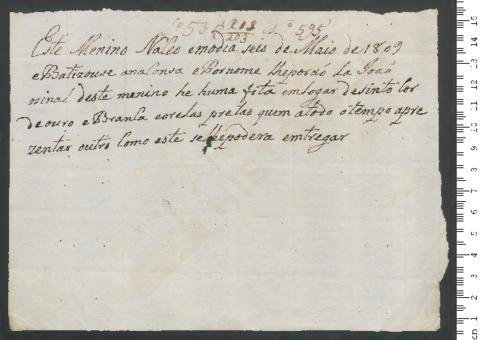 fo 53 L 213 No 595
203
Este Menino Naseo emodia seis de Maio de 1809
e Batizouse analonsa e Pornome lheporão La João
osinal deste menino he huma fita emlogar de sinto Cor
de ouro e Branca eorelas pretas quem atodo otempo apre
zentar outro Como este selhepodera emtregar